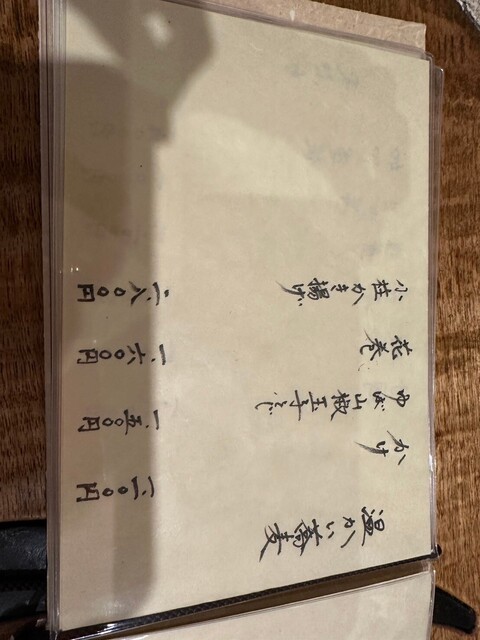 温かい蕎麦
かけ 一、一〇〇円
ゆば山椒玉子とじ 一、五〇〇円
花巻 一、六〇〇円
小柱かき揚げ 二、八〇〇円